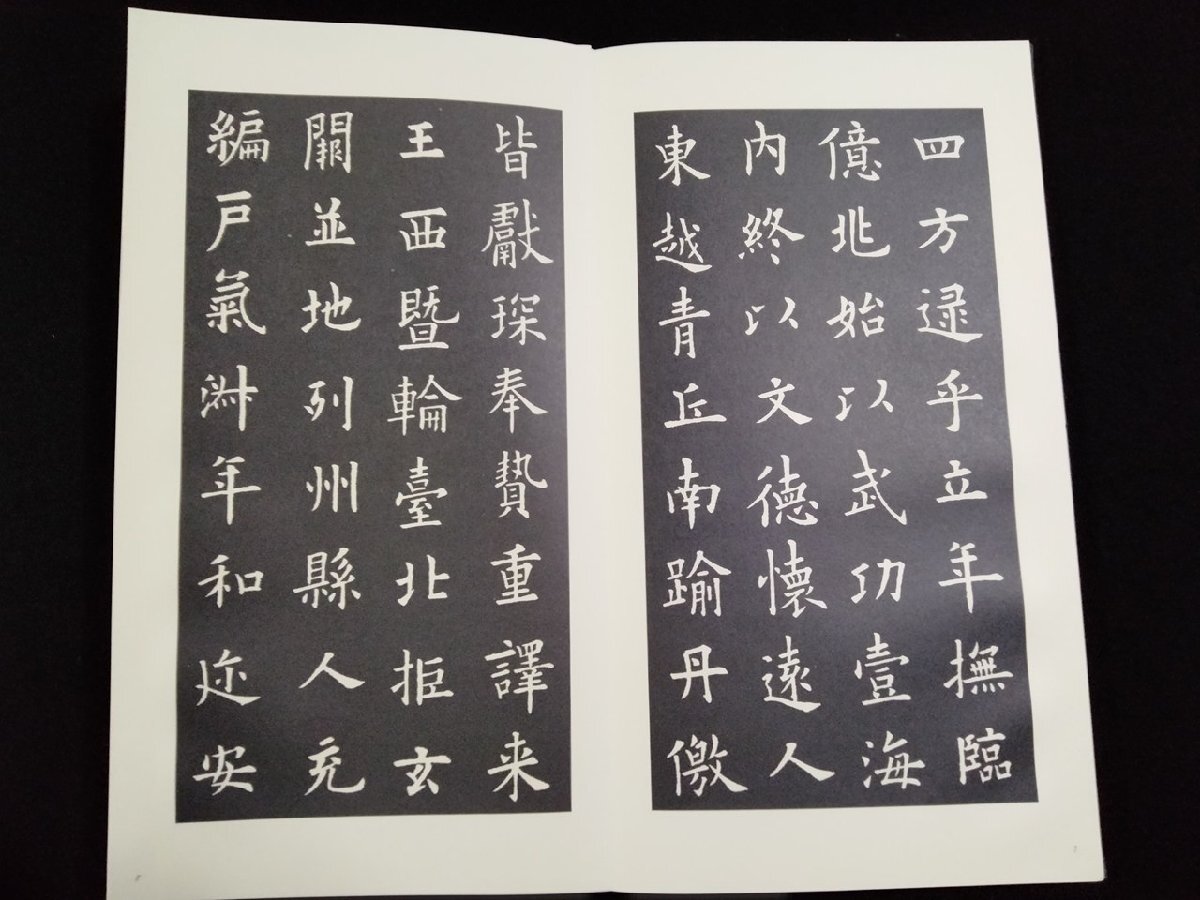 四方逯乎立年撫臨
億兆始以武功壹海
内終以文德懷遠人
東越青丘南踰丹儌
皆獻琛奉贄重譯来
王西暨輪臺北拒玄
闕並地列州縣人充
編戸氣淑年和迩安